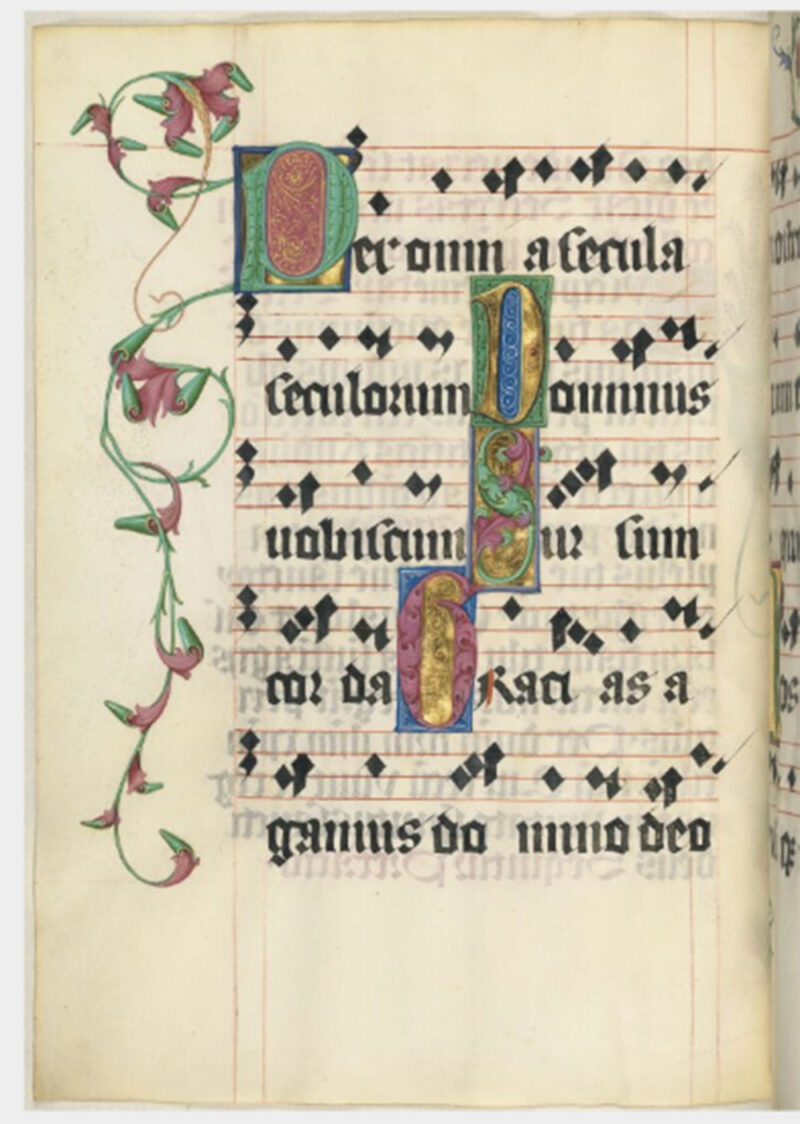 Per omn a secula
seculorum Dominus
uobiscum Sur sum
cor da Graci as a
gamus do mino deo